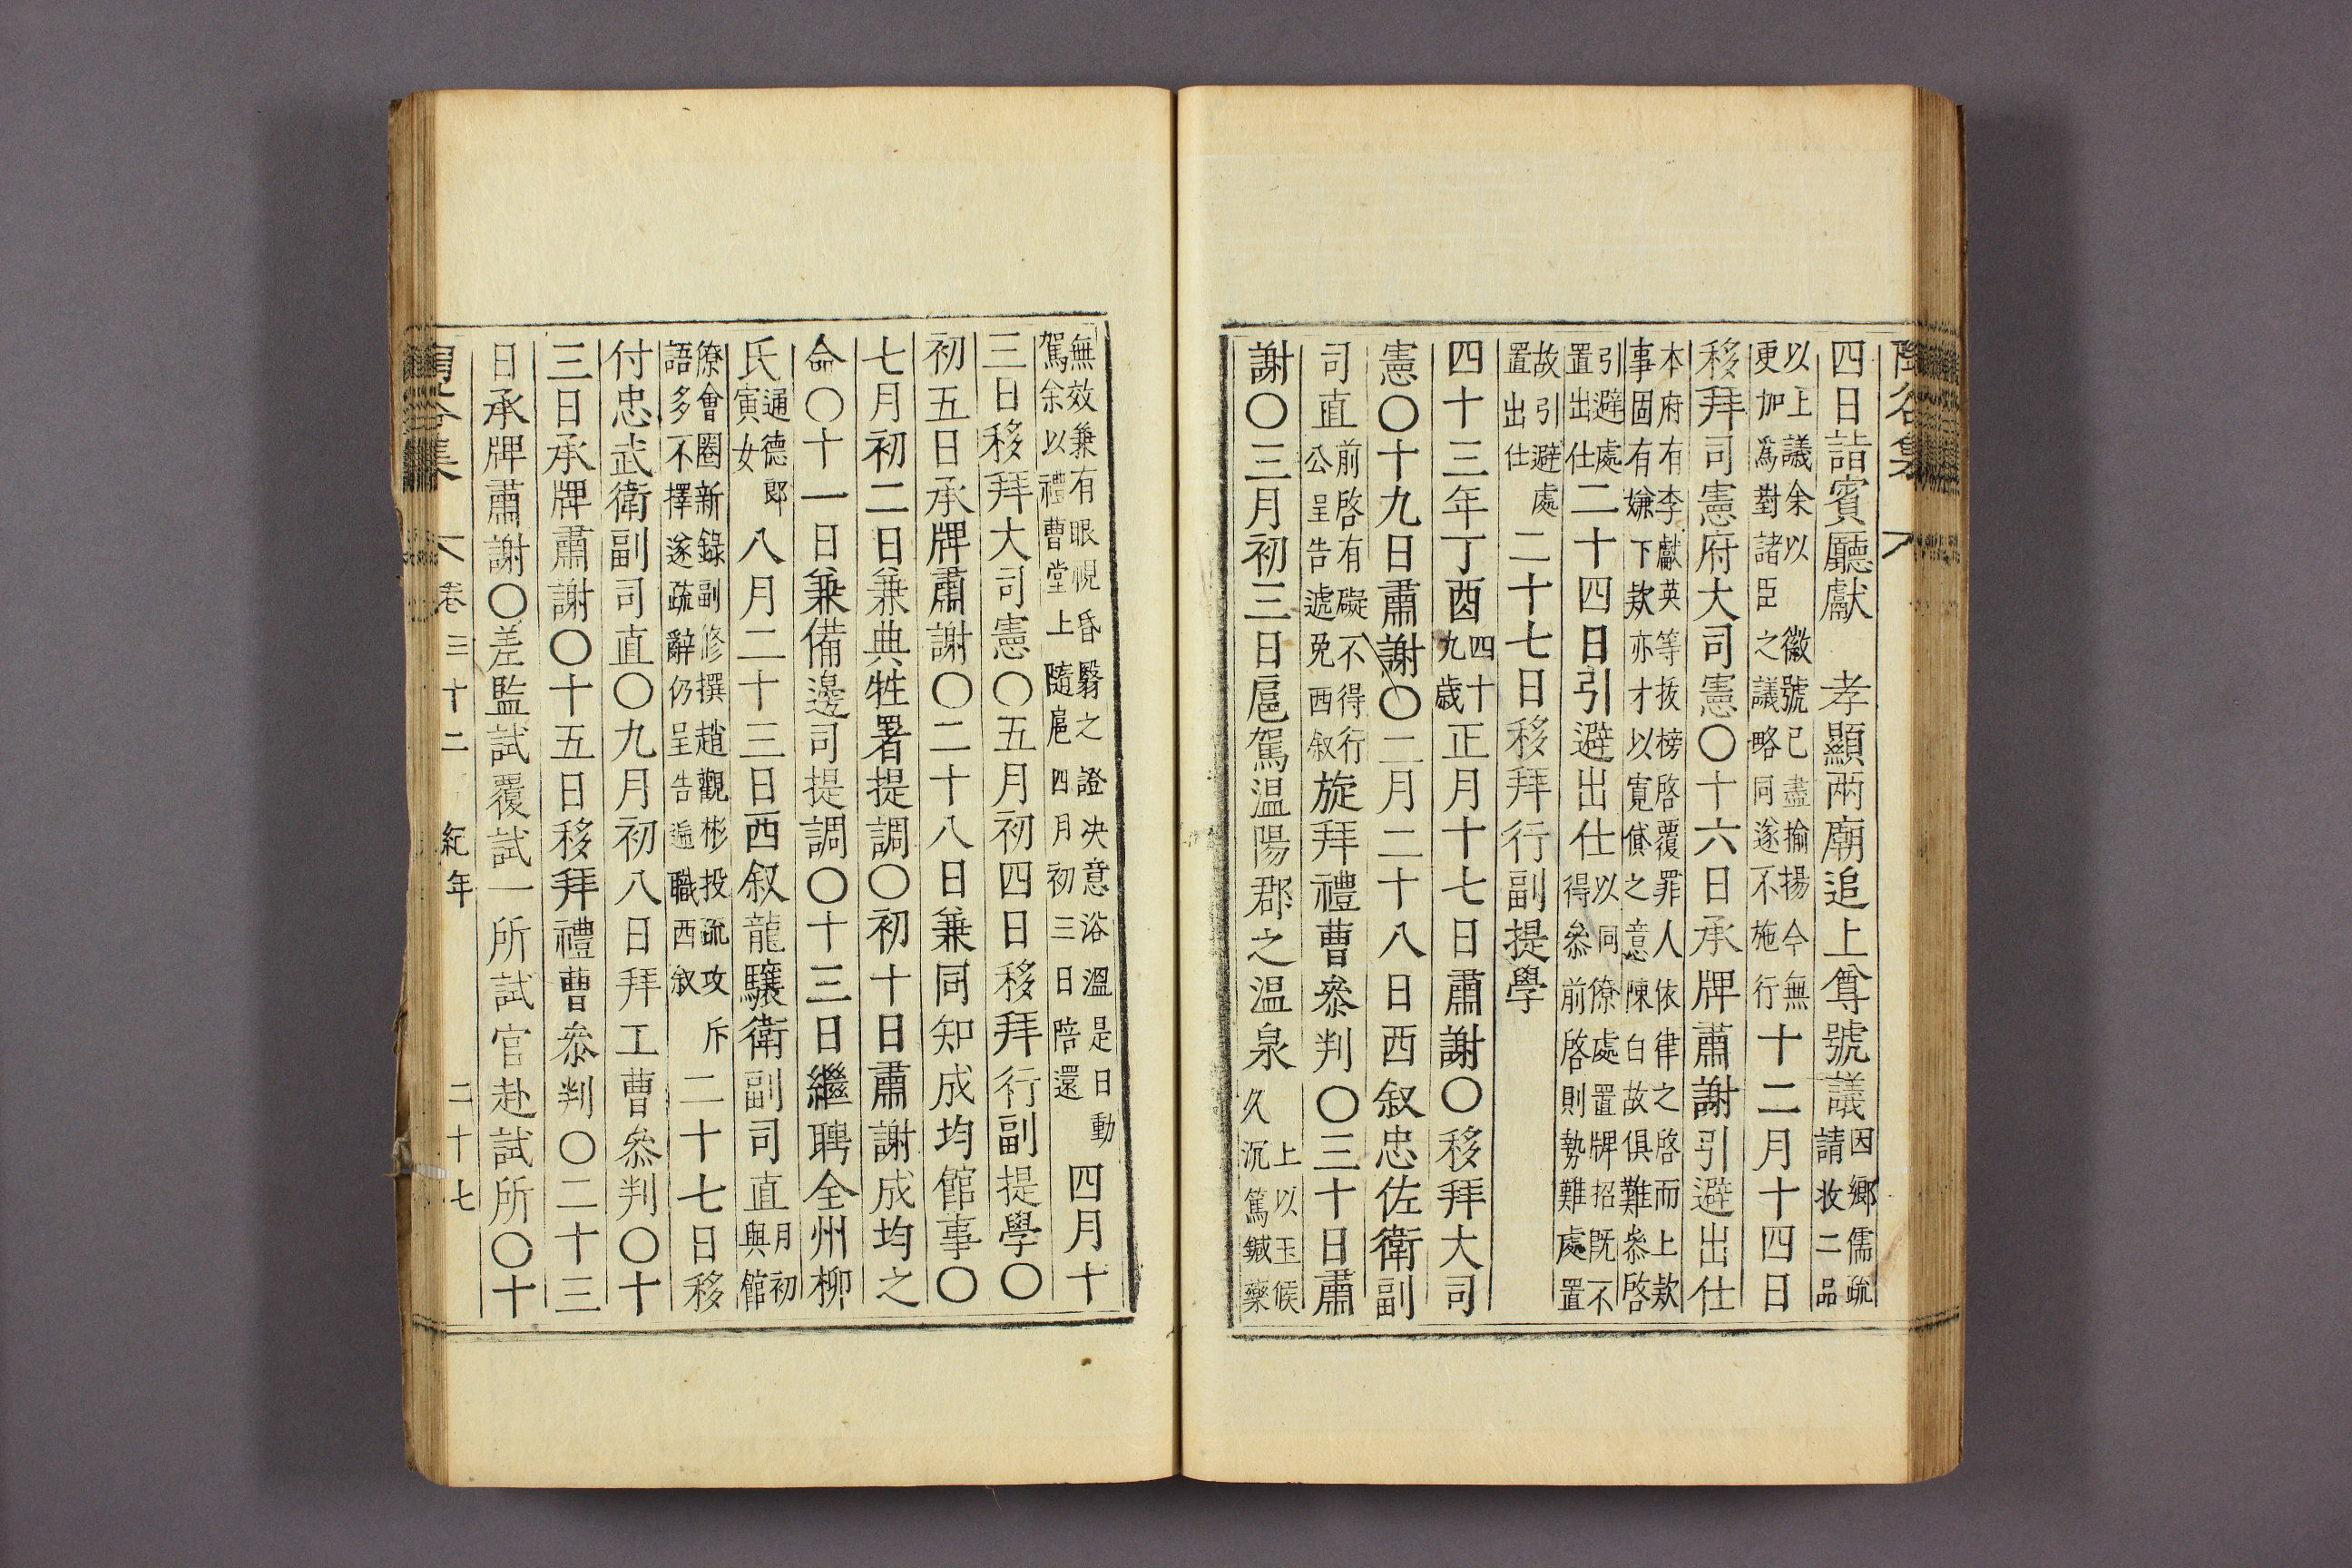 陶谷集
四日詣賓廳獻 孝顯兩廟追上尊號議因鄉儒疏請收二品
以上議余以 徽號已盡揄揚今無更加爲對諸臣之議略同遂不施行十二月十四日
移拜司憲府大司憲○十六日承牌肅謝引避出仕
本府有李獻英等拔榜啓覆罪人依律之啓而上款事固有嫌下款亦才以寬貸之意陳白故俱難叅啓
引避處置出仕二十四日引避出仕以同僚處置牌招既不得叅前啓則勢難處置
故引避處置出仕二十七日移拜行副提學
四十三年丁酉四十九歲正月十七日肅謝○移拜大司
憲○十九日肅謝○二月二十八日西叙忠佐衛副
司直前啓有礙不得行公呈告遞免西叙旋拜禮曹叅判○三十日肅
謝○三月初三日扈駕溫陽郡之溫泉上以玉候久沉篤鍼藥
無效兼有眼視昏翳之證决意浴溫是日動駕余以禮曹堂上隨扈四月初三日陪還四月十
三日移拜大司憲○五月初四日移拜行副提學○
初五日承牌肅謝○二十八日兼同知成均館事○
七月初二日兼典牲署提調○初十日肅謝成均之
命○十一日兼備邊司提調○十三日繼聘全州柳
氏通德郎寅女八月二十三日西叙龍驤衛副司直月初與館
僚會圈新錄副修撰趙觀彬投疏攻斥語多不擇遂疏辭仍呈告遞職西叙二十七日移
付忠武衛副司直○九月初八日拜工曹叅判○十
三日承牌肅謝○十五日移拜禮曹叅判○二十三
日承牌肅謝○差監試覆試一所試官赴試所○十
陶谷集 卷三十二 紀年 二十七